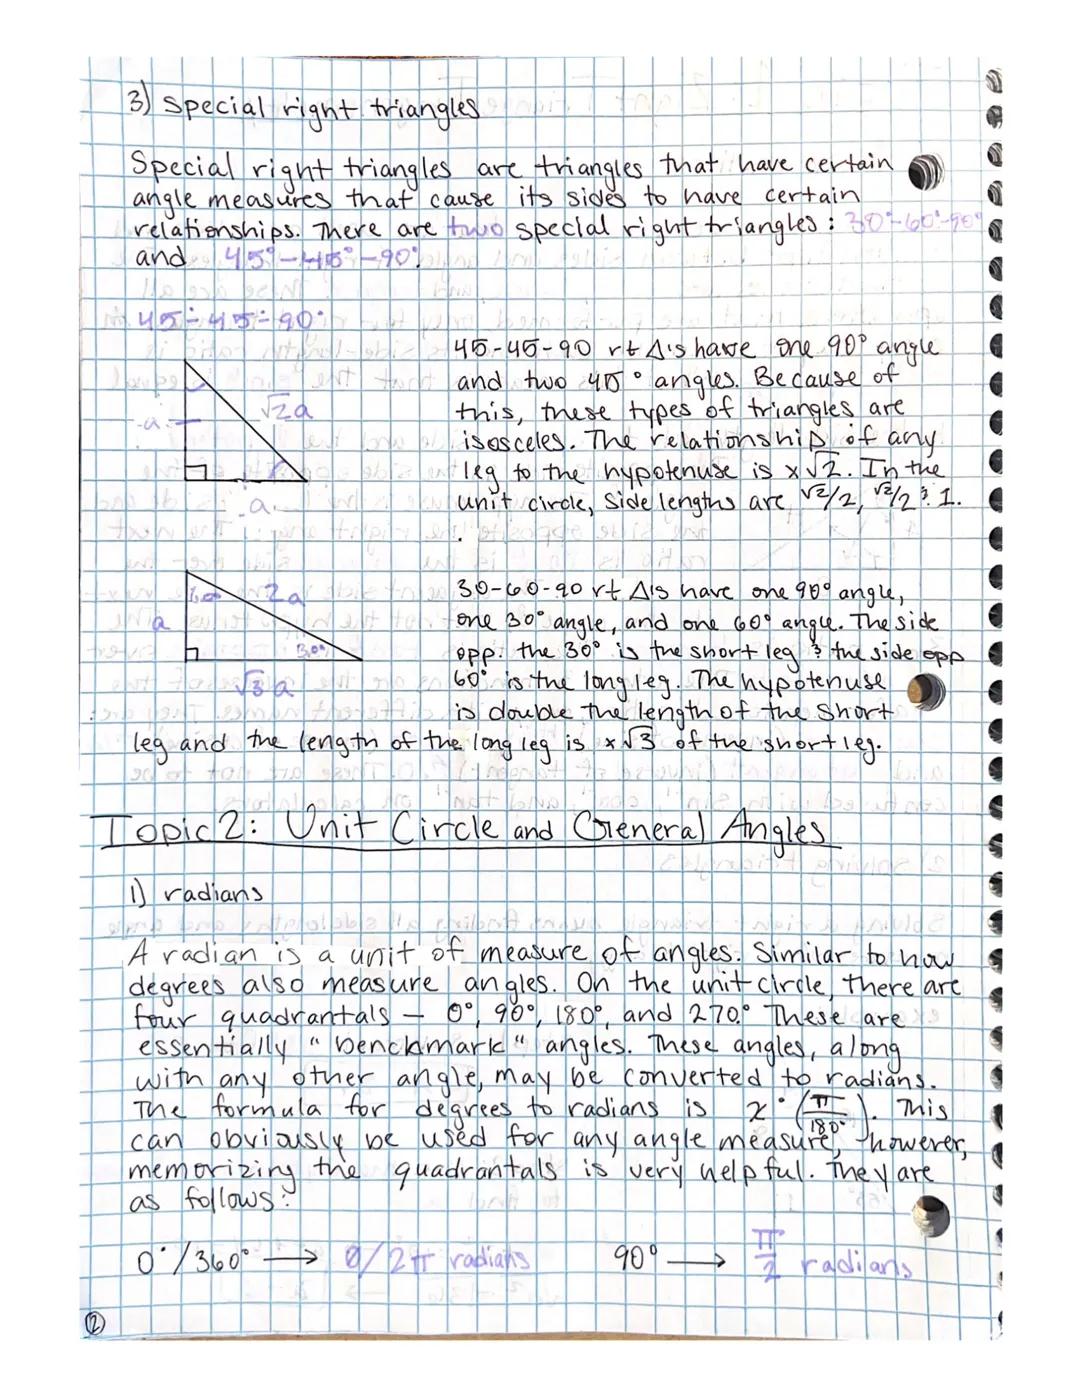 3) special right triangles
Special right triangles are triangles that have certain
angle measures that cause its sides to have certain
relationships. There are two special right triangles : 30°-60°-90°
and 45°-45°-90°.
45-45-90:
45-45-90 rt Δ's have one 90° angle
and two 45° angles. Because of
this, these types of triangles are
isosceles. The relationship of any
leg to the hypotenuse is x√2. In the
unit circle, side lengths are √2/2, √2/2 & 1.
a
√2a
a
30-60-90 rt Δ's have one 90° angle,
one 30° angle, and one 60° angle. The side
opp. the 30° is the short leg & the side opp
60° is the long leg. The hypotenuse
is double the length of the short
leg and the length of the long leg is x√3 of the short leg.
60°
2a
a
30°
√3 a
Topic 2: Unit Circle and General Angles
1) radians
A radian is a unit of measure of angles. Similar to how
degrees also measure angles. On the unit circle, there are
four quadrantals — 0°, 90°, 180°, and 270.° These are
essentially "benckmark" angles. These angles, along
with any other angle, may be converted to radians.
The formula for degrees to radians is x·(π/180°). This
can obviously be used for any angle measure, however,
memorizing the quadrantals is very helpful. They are
as follows:
0°/360° → 0/2π radians 90° → π/2 radians
2